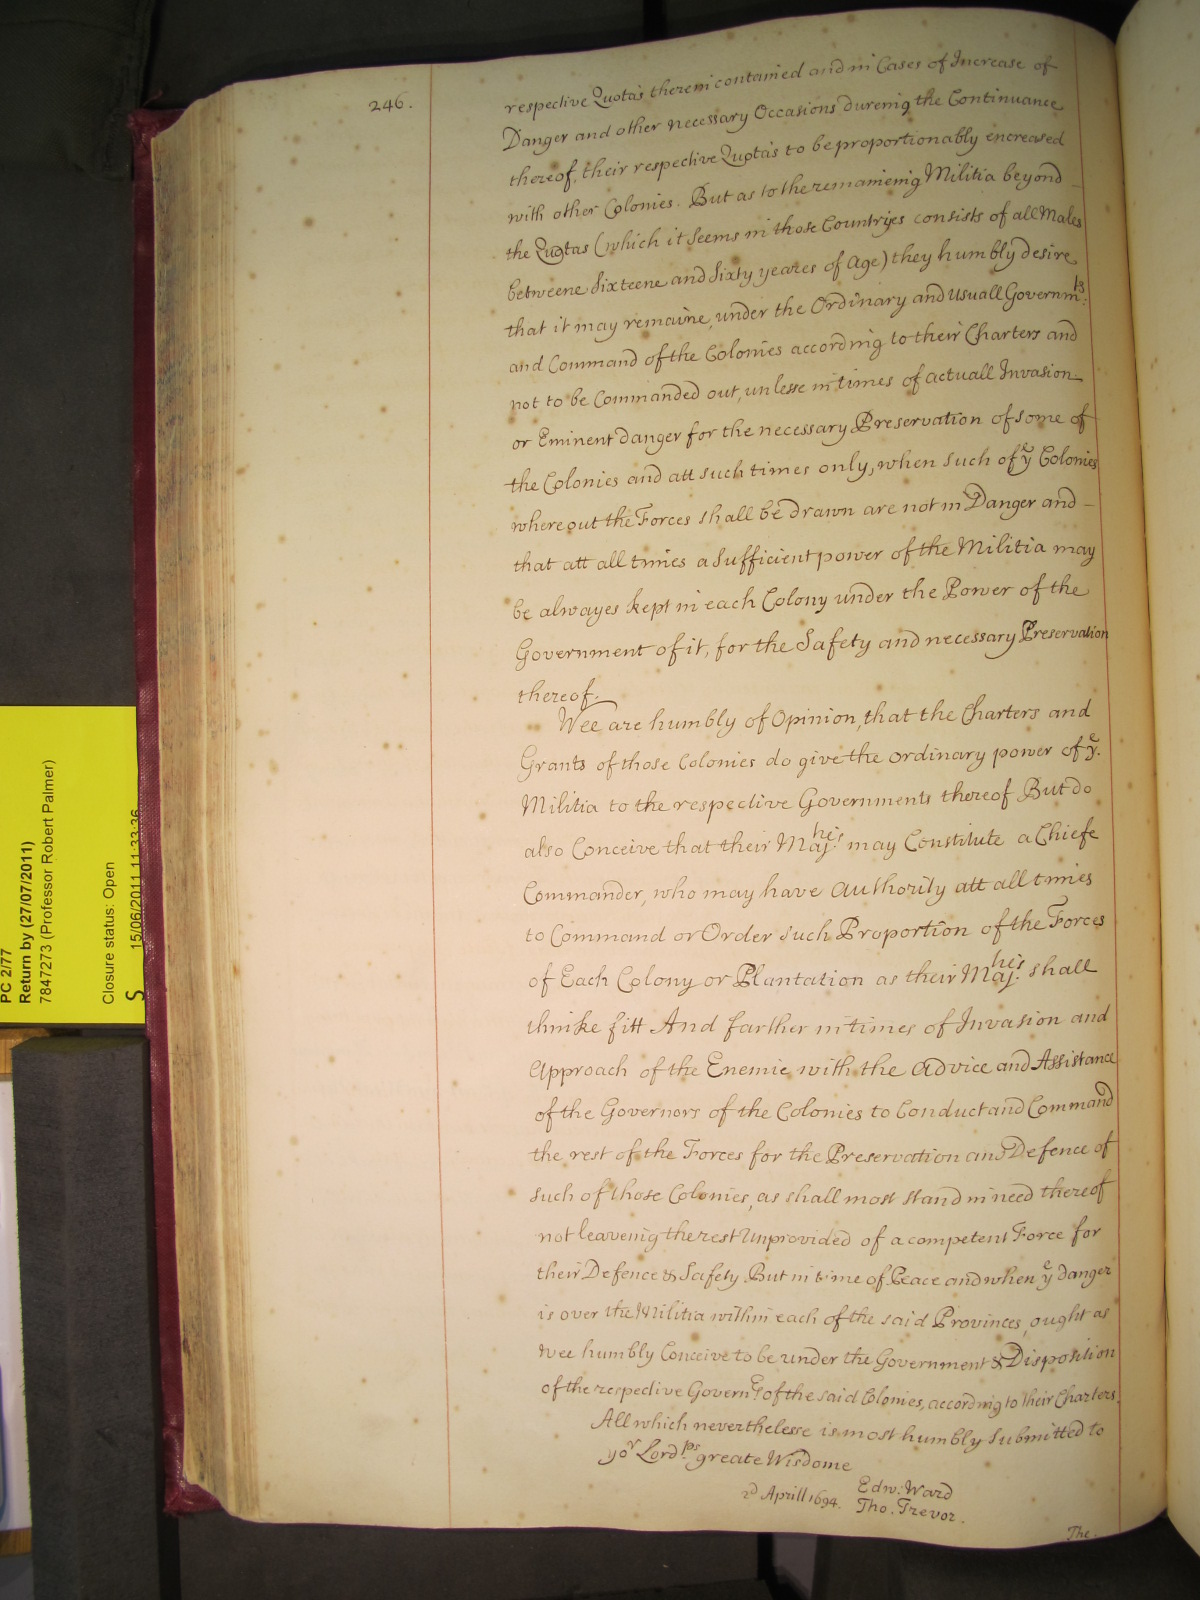 246.
respective Quota's therein contained and in Cases of Increase of
Danger and other necessary Occasions dureing the Continuance
thereof, their respective Quota's to be proportionably encreased
with other Colonies. But as to the remainieing Militia beyond -
the Quotas (which it seems in those Countryes consists of all Males
betweene Sixteene and Sixty yeares of Age) they humbly desire
that it may remaine, under the Ordinary and usuall Governmts:
and Command of the Colonies according to their Charters and
not to be Commanded out, unlesse in times of actuall Invasion
or Eminent danger for the necessary Preservation of some of
the Colonies and att such times only, when such of ye Colonies
where out the Forces shall be drawn are not in Danger and -
that att all times a Sufficient power of the Militia may
be alwayes kept in each Colony under the Power of the
Government of it, for the Safety and necessary Preservation
thereof.
Wee are humbly of Opinion, that the Charters and
Grants of those Colonies do give the ordinary power of ye.
Militia to the respective Governments thereof But do
also Conceive that their Majhe's may Constitute a Chiefe
Commander, who may have Authority att all times
to Command or Order such Proportion of the Forces
of Each Colony or Plantation as their Majhe's shall
thinke fitt And farther in times of Invasion and
Approach of the Enemie with the Advice and Assistance
of the Governors of the Colonies to Conduct and Command
the rest of the Forces for the Preservation and Defence of
such of those Colonies, as shall most stand in need thereof
not leaveing the rest Unprovided of a competent Force for
their Defence & Safety But in time of Peace and when ye danger
is over the Militia within each of the said Provinces, ought as
wee humbly Conceive to be under the Government & Disposition
of the respective Governrs of the said Colonies, according to their Charters.
All which neverthelesse is most humbly Submitted to
yor Lordps greate Wisdome
2d Aprill 1694. Edw: Ward
Tho. Trevor.
The.
PC 2/77
Return by (27/07/2011)
7847273 (Professor Robert Palmer)
Closure status: Open
S 15/06/2011 11:33:36